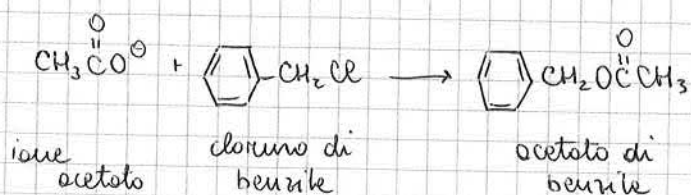 CH₃CO⊖ + CH₂Cl → CH₂OCCH₃
O O
ione acetato
cloruro di benzile
acetato di benzile